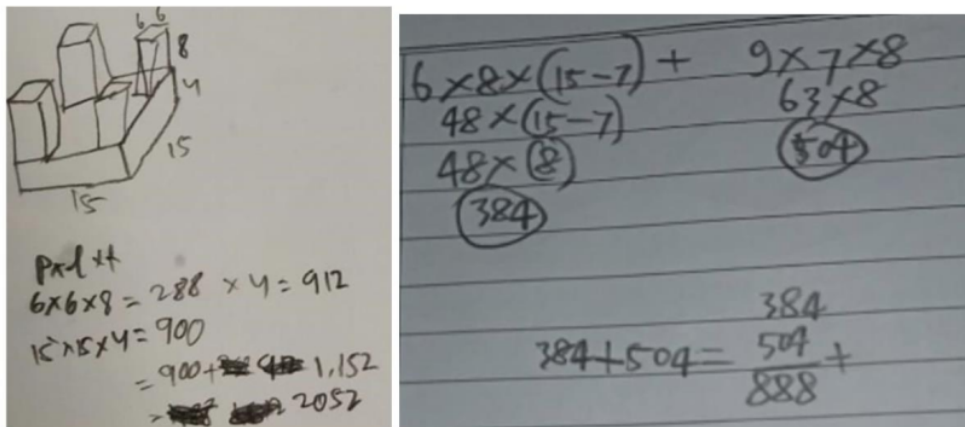 6 6
8
4
15
15
pxlxt
6x6x8 = 288 x 4 = 912
15x15x4 = 900
= 900 + 1,152
= 2052
6x8x(15-7) + 9x7x8
48x(15-7) 63x8
48x(8) 504
384
384
384+504= 504 +
888